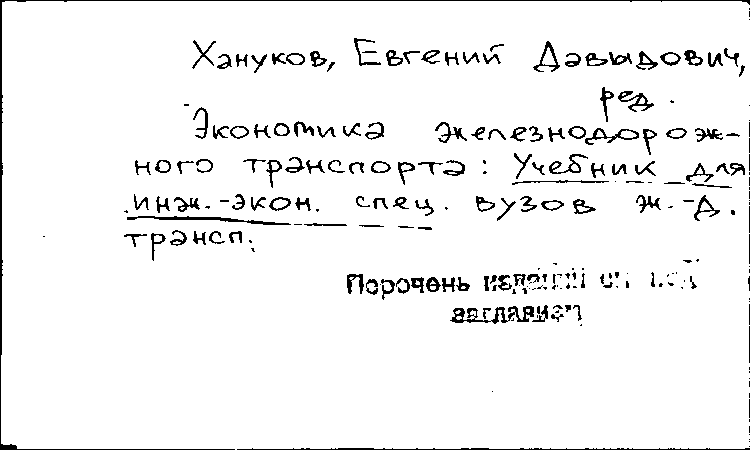 Хануков, Евгений Давыдович,
ред.
Экономика железнодорож-
ного транспорта: Учебник для
инж.-экон. спец. вузов ж.-д.
трансп.
Перечень изданий см. под
заглавием